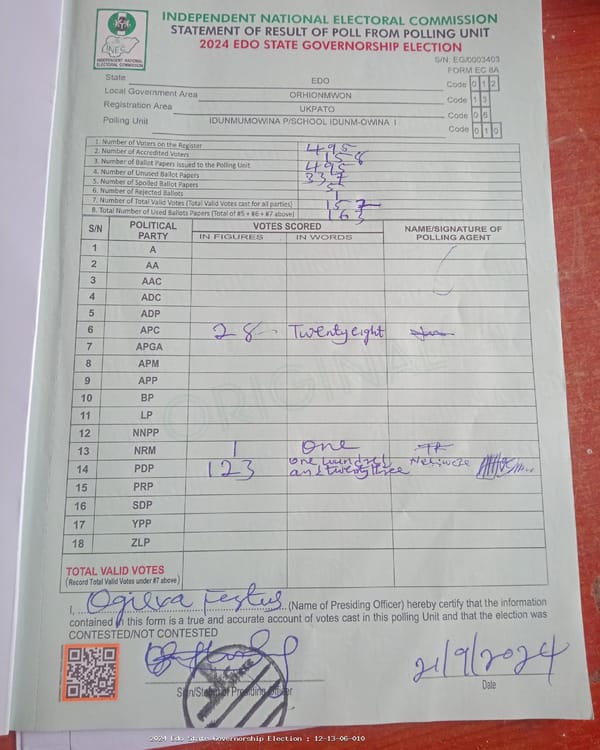 INDEPENDENT NATIONAL ELECTORAL COMMISSION
STATEMENT OF RESULT OF POLL FROM POLLING UNIT
2024 EDO STATE GOVERNORSHIP ELECTION
INEC
INDEPENDENT NATIONAL
ELECTORAL COMMISSION
S/N: EG/0003403
FORM EC 8A
State EDO Code 0 1 2
Local Government Area ORHIONMWON Code 1 3
Registration Area UKPATO Code 0 6
Polling Unit IDUNMUMOWINA P/SCHOOL IDUNM-OWINA I Code 0 1 0
1. Number of Voters on the Register 495
2. Number of Accredited Voters 158
3. Number of Ballot Papers Issued to the Polling Unit 495
4. Number of Unused Ballot Papers 337
5. Number of Spoiled Ballot Papers
6. Number of Rejected Ballots
7. Number of Total Valid Votes (Total Valid Votes cast for all parties)
8. Total Number of Used Ballots Papers (Total of #5 + #6 + #7 above)
S/N POLITICAL PARTY VOTES SCORED NAME/SIGNATURE OF POLLING AGENT
IN FIGURES IN WORDS
1 A
2 AA
3 AAC
4 ADC
5 ADP
6 APC 28 Twenty eight
7 APGA
8 APM
9 APP
10 BP
11 LP
12 NNPP
13 NRM 1 One
14 PDP 123 One hundred and twenty three
15 PRP
16 SDP
17 YPP
18 ZLP
ORIGINAL
TOTAL VALID VOTES
(Record Total Valid Votes under #7 above)
I, Festus (Name of Presiding Officer) hereby certify that the information
contained in this form is a true and accurate account of votes cast in this polling Unit and that the election was
CONTESTED/NOT CONTESTED
21/9/2024
Sign/Stamp of Presiding Officer
Date
2024 Edo State Governorship Election : 12-13-06-010